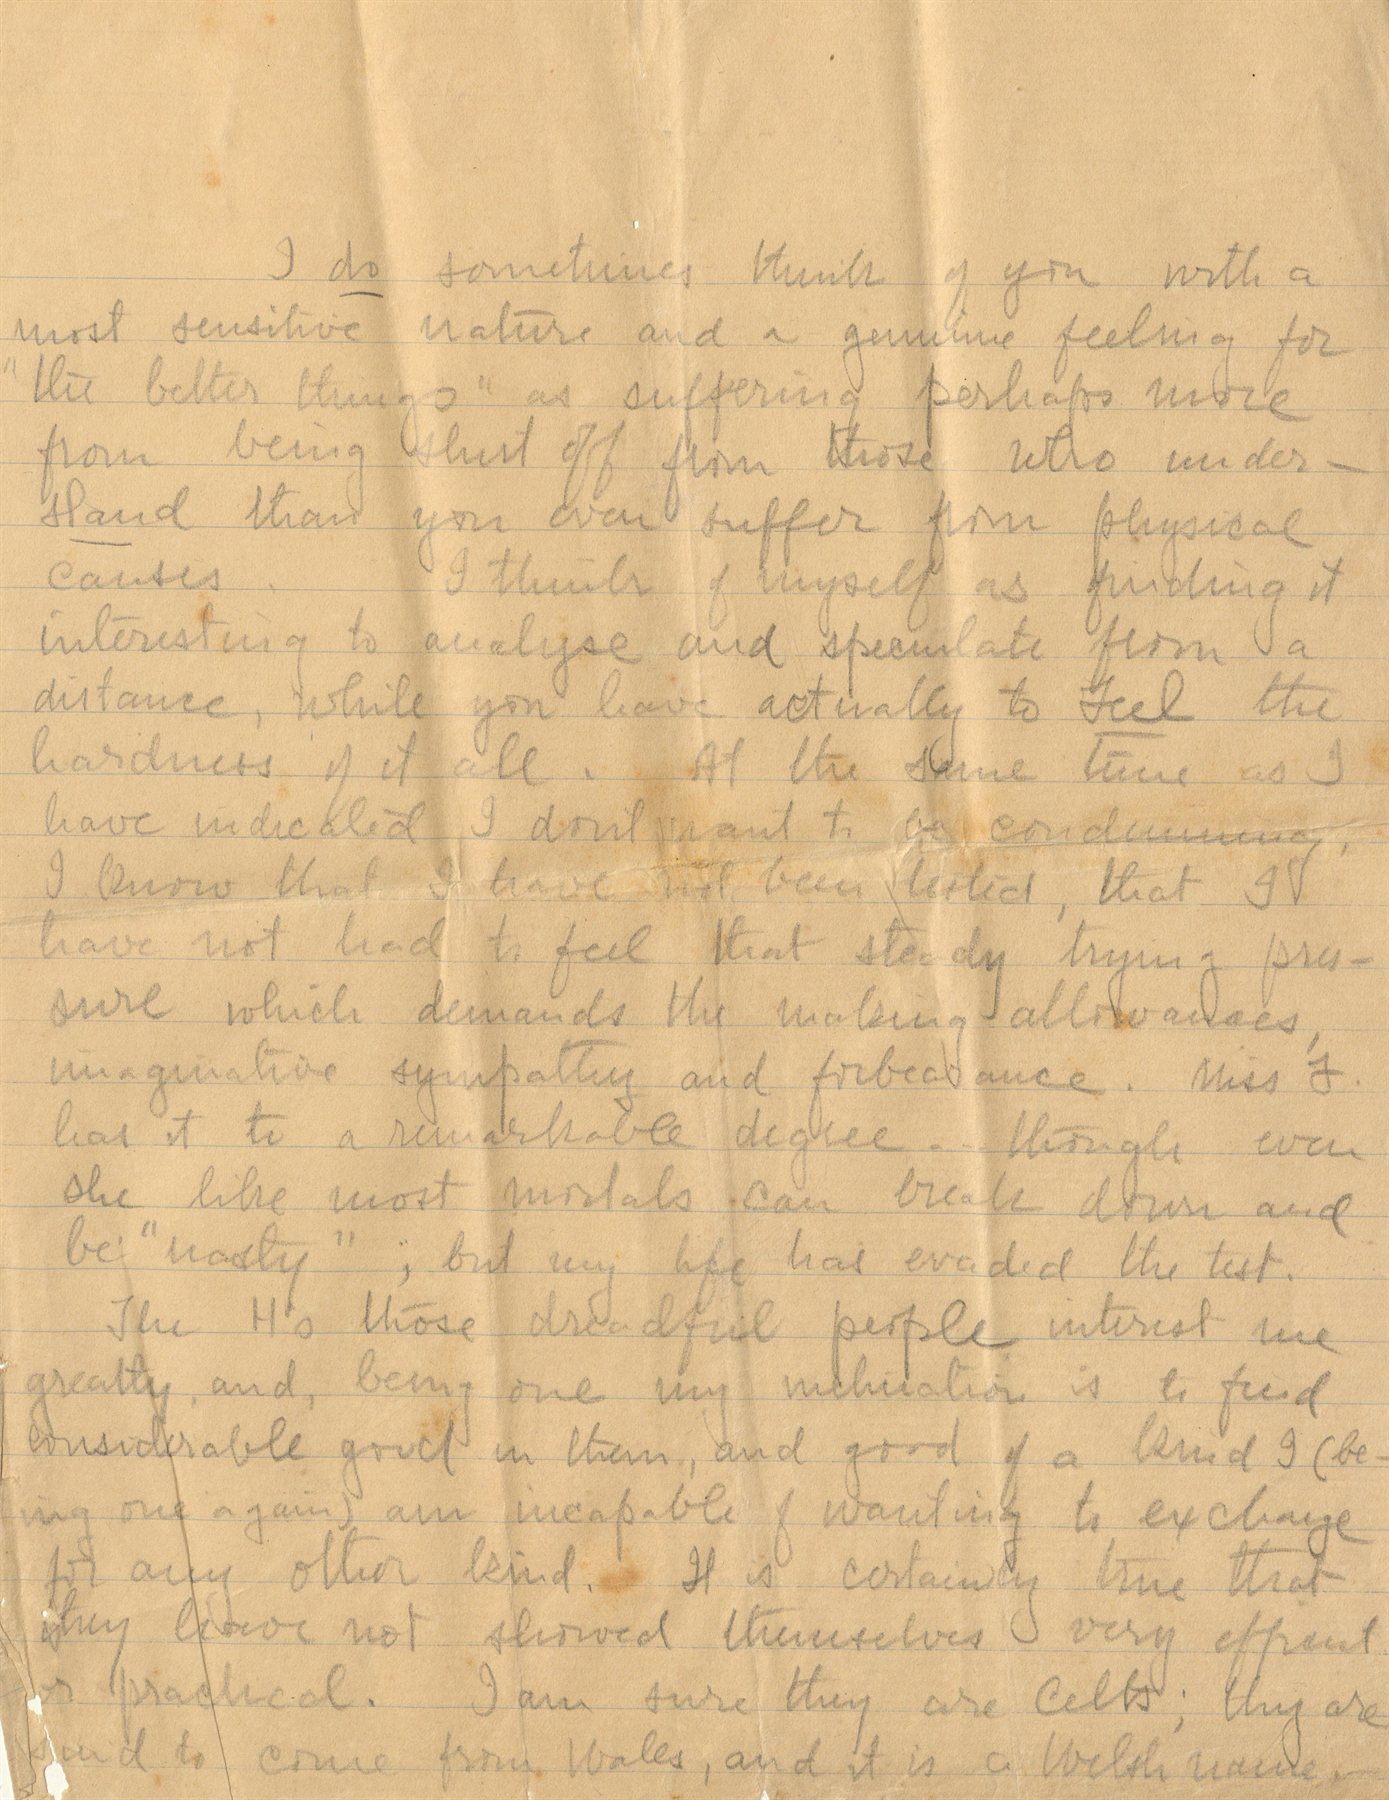 I do sometimes think of you with a
most sensitive nature and a genuine feeling for
"the better things" as suffering perhaps more
from being shut off from those who under-
stand than you even suffer from physical
causes. I think of myself as finding it
interesting to analyse and speculate from a
distance, while you have actually to feel the
hardness of it all. At the same time as I
have indicated I don't want to be condemning,
I know that I have not been tested, that I
have not had to feel that steady trying pres-
sure which demands the making allowances,
imaginative sympathy and forbearance. Miss F.
has it to a remarkable degree - though even
she like most mortals can break down and
be "nasty"; but my life has evaded the test.
The H's those dreadful people interest me
greatly, and, being one my inclination is to find
considerable good in them, and good of a kind I (be-
ing one again) am incapable of wanting to exchange
for any other kind. It is certainly true that
they have not showed themselves very
or practical. I am sure they are Celts; they are
said to come from Wales, and it is a Welsh name.-